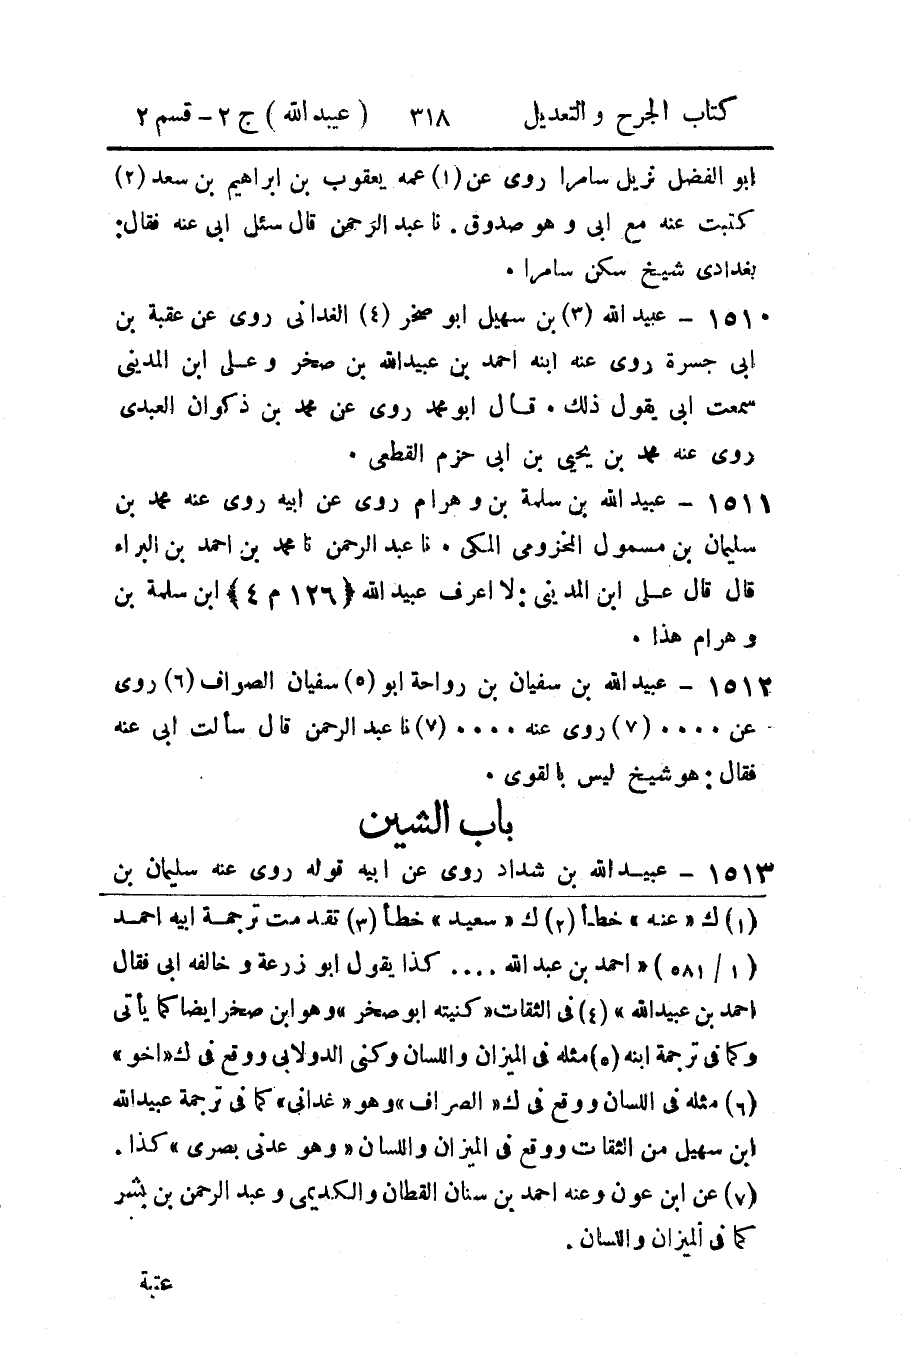 كتاب الجرح والتعديل ٣١٨ ( عبيد الله ) ج ٢ - قسم ٢
ابو الفضل نزيل سامرا روى عن (١) عمه يعقوب بن ابراهيم بن سعد (٢)
كتبت عنه مع ابى وهو صدوق . نا عبد الرحمن قال سئل ابى عنه فقال:
بغدادى شيخ سكن سامرا .
١٥١٠ - عبيد الله (٣) بن سهيل ابو صخر (٤) الغدانى روى عن عقبة بن
ابى جسرة روى عنه ابنه احمد بن عبيدالله بن صخر وعلى ابن المدينى
سمعت ابى يقول ذلك . قال ابو محمد روى عن محمد بن ذكوان العبدى
روى عنه محمد بن يحيى بن ابى حزم القطعى .
١٥١١ - عبيد الله بن سلمة بن وهرام روى عن ابيه روى عنه محمد بن
سليمان بن مسمول المخزومى المكى . نا عبد الرحمن نا محمد بن احمد بن البراء
قال قال على ابن المدينى : لا اعرف عبيد الله { ١٢٦ م ٤ } ابن سلمة بن
وهرام هذا .
١٥١٢ - عبيد الله بن سفيان بن رواحة ابو (٥) سفيان الصواف (٦) روى
عن .... (٧) روى عنه .... (٧) نا عبد الرحمن قال سألت ابى عنه
فقال : هو شيخ ليس بالقوى .
باب الشين
١٥١٣ - عبيد الله بن شداد روى عن ابيه قوله روى عنه سليمان بن
(١) ك « عنه » خطأ (٢) ك « سعيد » خطأ (٣) تقدمت ترجمة ابيه احمد
(١ / ٥٨١) « احمد بن عبد الله .... كذا يقول ابو زرعة و خالفه ابى فقال
احمد بن عبيدالله » (٤) فى الثقات « كنيته ابو صخر » وهو ابن صخر ايضا كما يأتى
وكما فى ترجمة ابنه (٥) مثله فى الميزان واللسان وكنى الدولابى ووقع فى ك « اخو »
(٦) مثله فى اللسان ووقع فى ك « الصراف » وهو « غدانى » كما فى ترجمة عبيدالله
ابن سهيل من الثقات ووقع فى الميزان واللسان « وهو عدنى بصرى » كذا .
(٧) عن ابن عون وعنه احمد بن سنان القطان والكديمى وعبد الرحمن بن بشر
كما فى الميزان واللسان .
عتبة